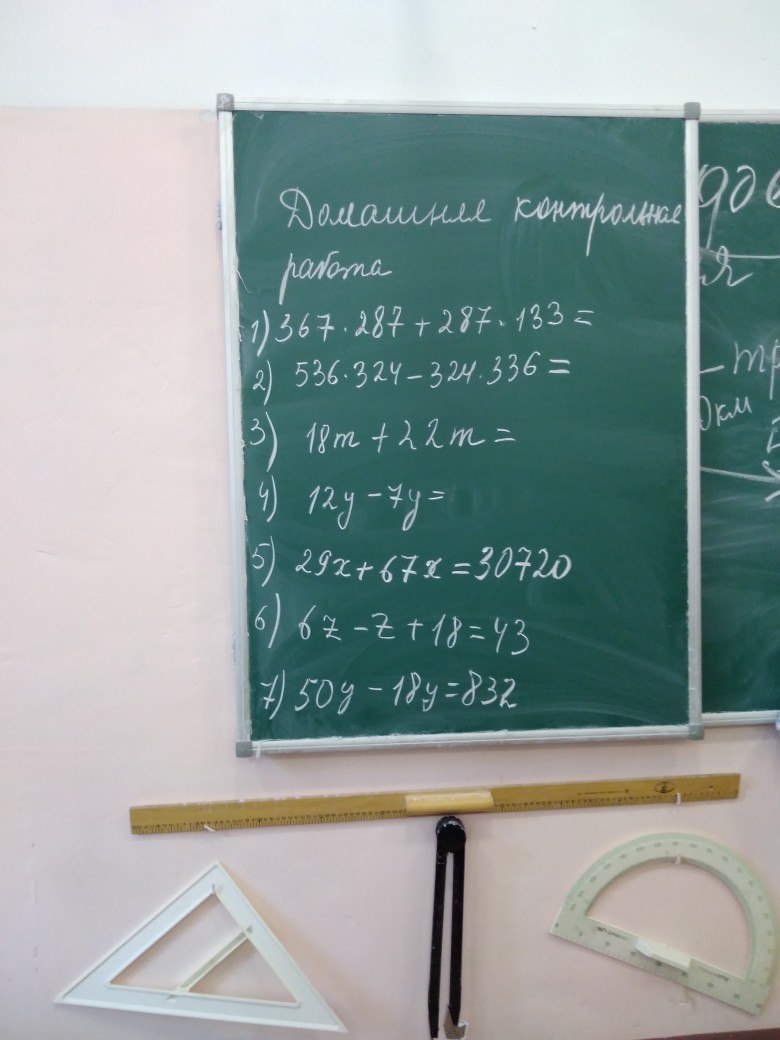 Домашняя контрольная
работа
1) 367·287+287·133=
2) 536·324-324·336=
3) 18m+22m=
4) 12y-7y=
5) 29x+67x=30720
6) 6z-z+18=43
7) 50y-18y=832
я